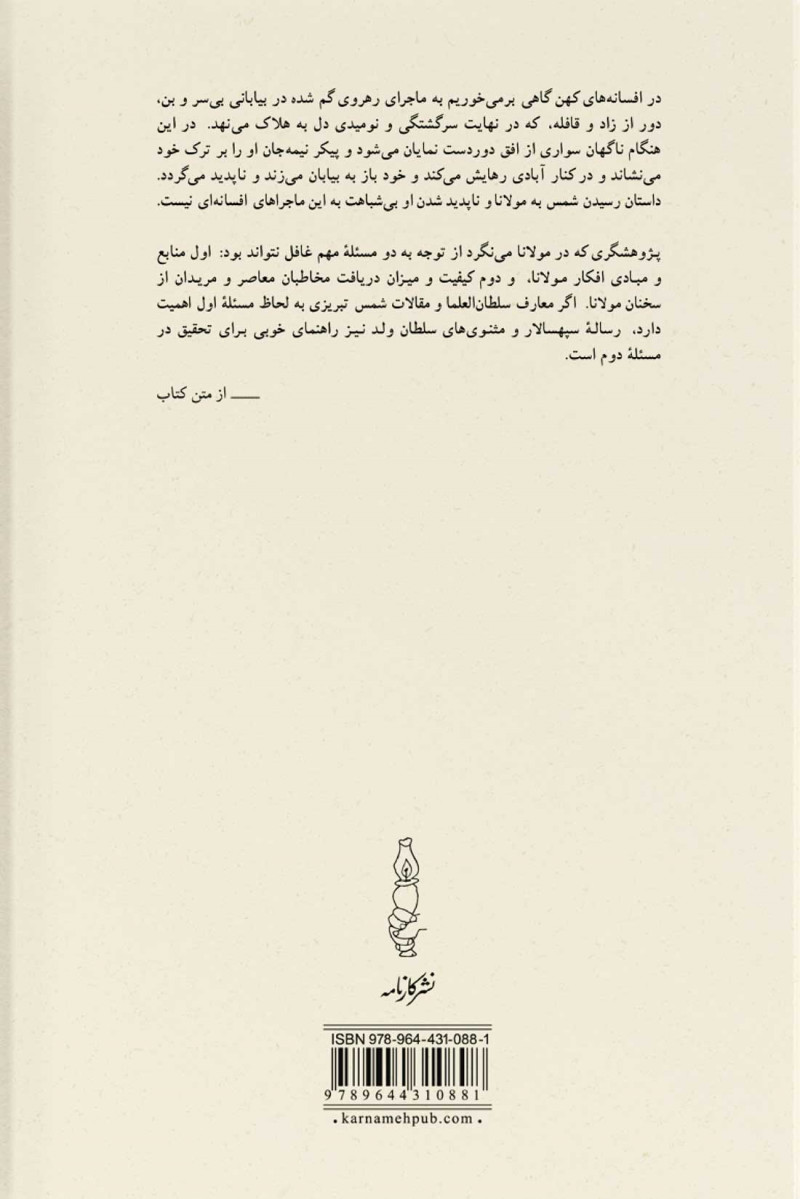 در افسانه‌های کهن گاهی برمی‌خوریم به ماجرای رهروی گم شده در بیابانی بی‌سر و بن،
دور از زاد و قافله، که در نهایت سرگشتگی و نومیدی دل به هلاک می‌نهد. در این
هنگام ناگهان سواری از افق دوردست نمایان می‌شود و پیکر نیمه‌جان او را بر ترک خود
می‌نشاند و در کنار آبادی رهایش می‌کند و خود باز به بیابان می‌زند و ناپدید می‌گردد.
داستان رسیدن شمس به مولانا و ناپدید شدن او بی‌شباهت به این ماجراهای افسانه‌ای نیست.
پژوهشگری که در مولانا می‌نگرد از توجه به دو مسئلهٔ مهم غافل نتواند بود: اول منابع
و مبادی افکار مولانا، و دوم کیفیت و میزان دریافت مخاطبان معاصر و مریدان از
سخنان مولانا. اگر معارف سلطان‌العلما و مقالات شمس تبریزی به لحاظ مسئلهٔ اول اهمیت
دارد، رسالهٔ سپهسالار و مثنوی‌های سلطان ولد نیز راهنمای خوبی برای تحقیق در
مسئلهٔ دوم است.
ــــ از متن کتاب
نشر کارنامه
ISBN 978-964-431-088-1
9 789644 310881
. karnamehpub.com .